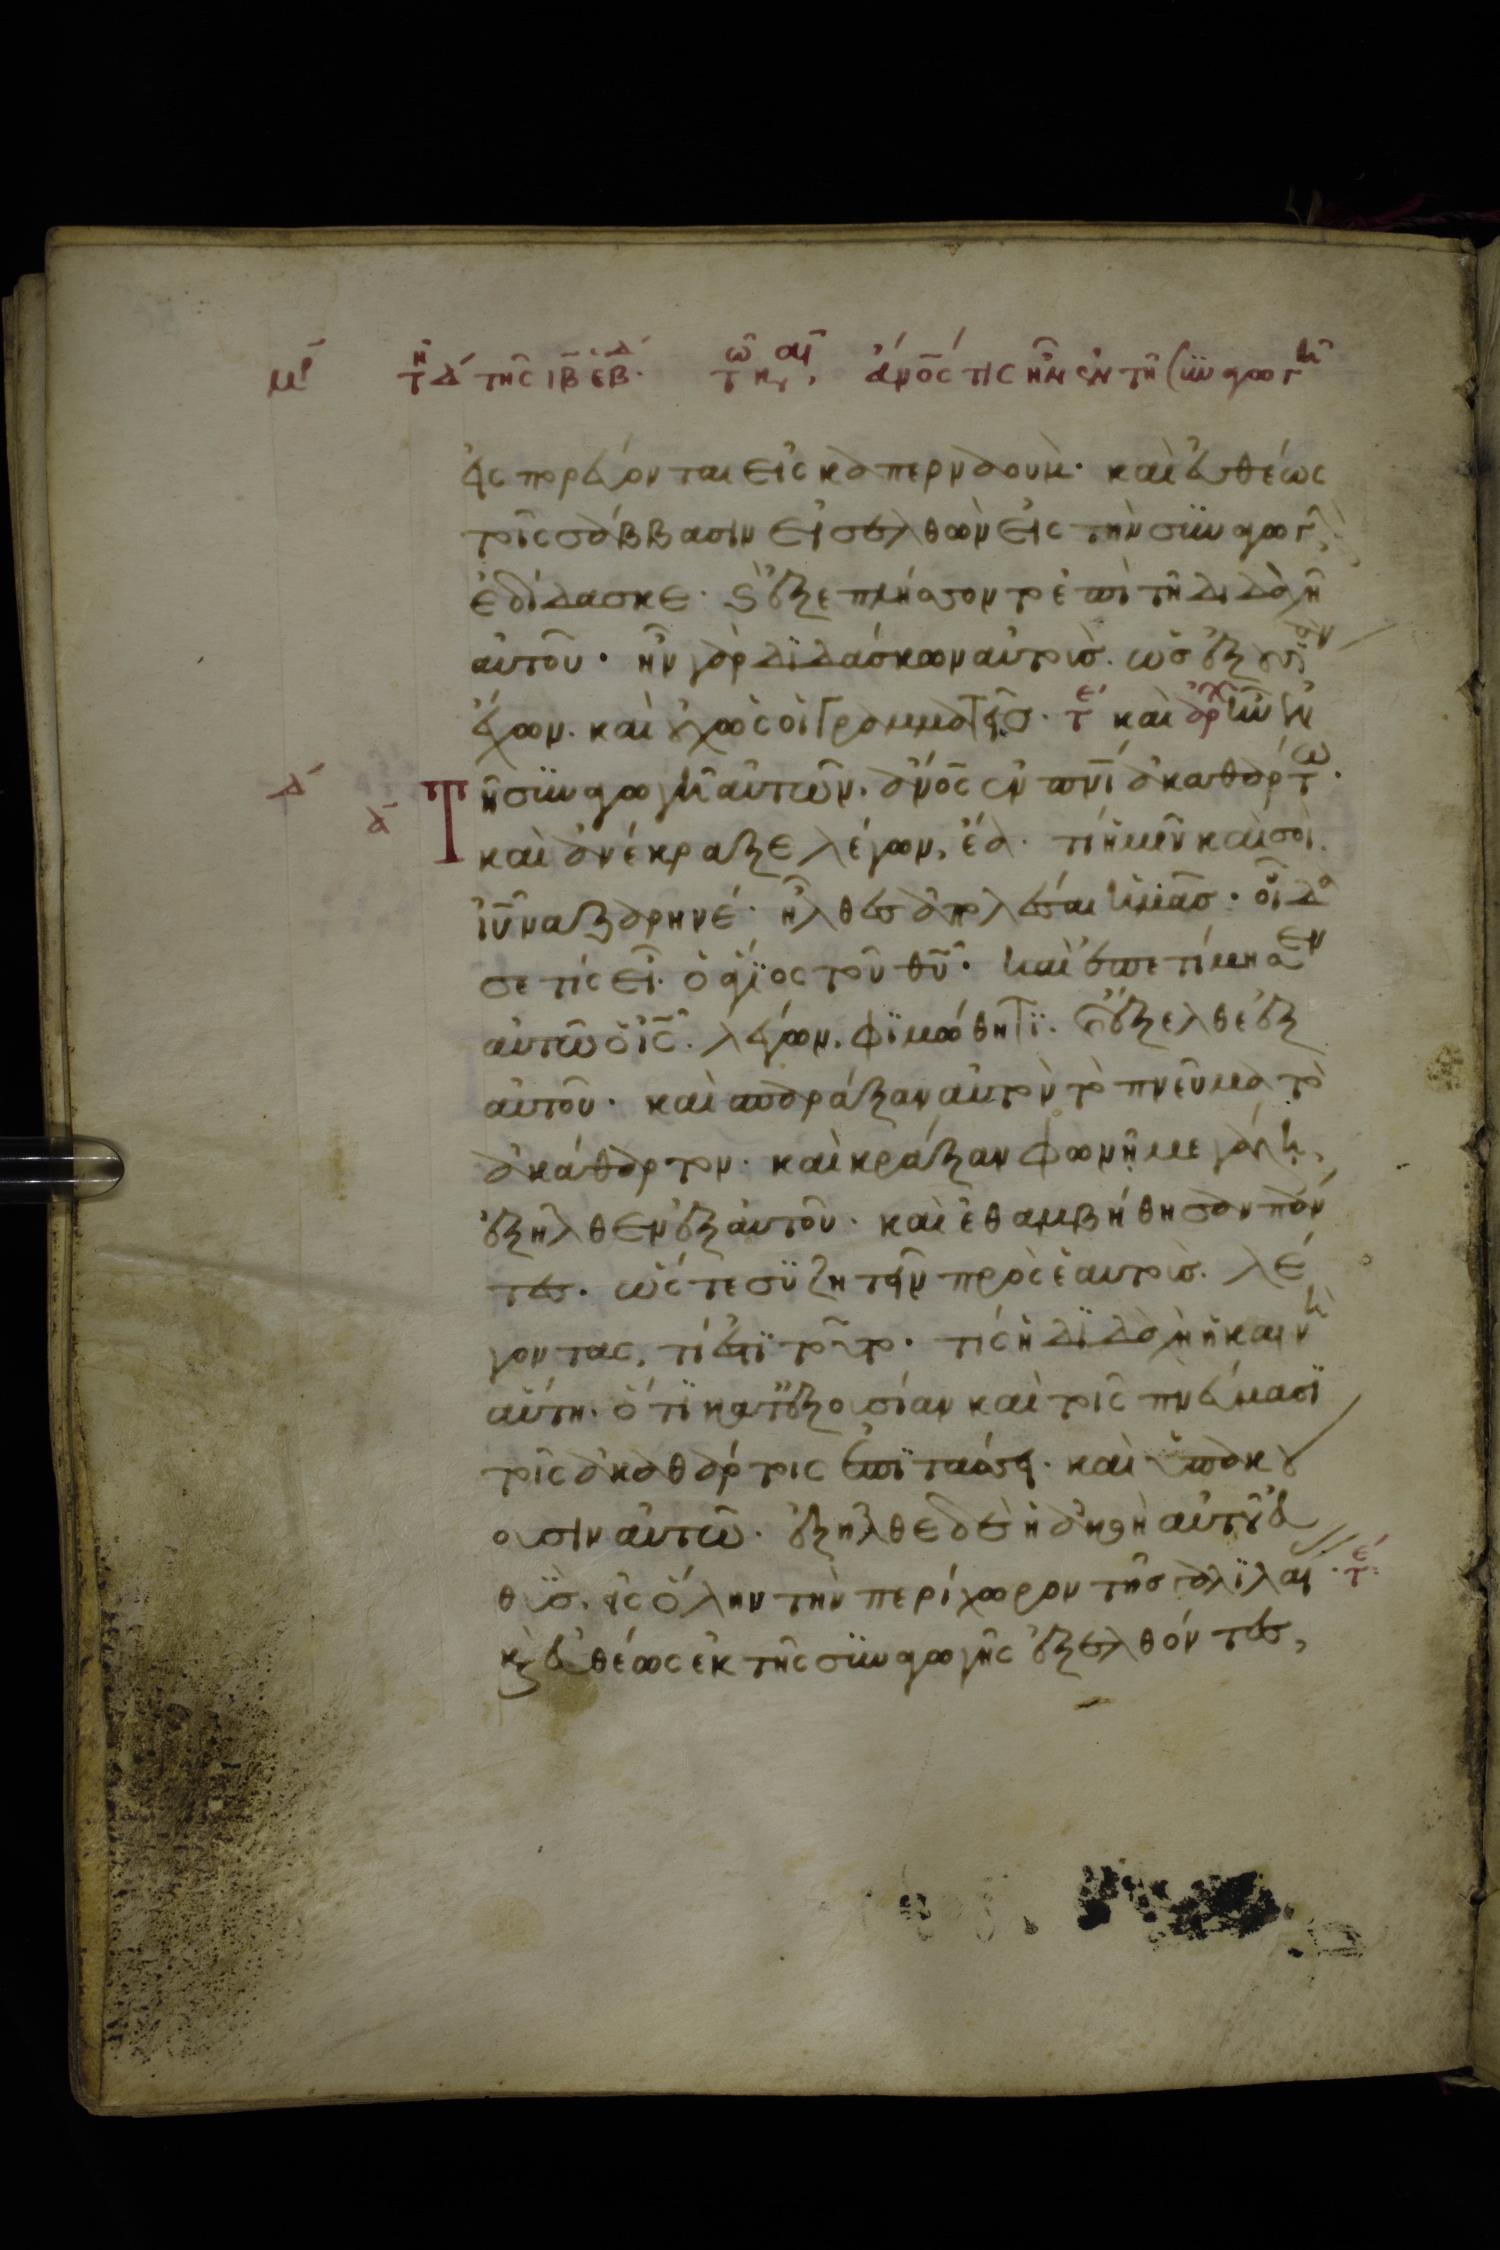 τῆ δ´ τῆς ιβ ἑβδ. τῶ καιρ, ἄνος τις ἦν ἐν τῆ συναγωγῆ
εἰσπορεύονται εἰς καπερναούμ· καὶ εὐθέως
τοῖς σάββασιν εἰσελθὼν εἰς τὴν συναγωγ
ἐδίδασκε· καὶ ἐξεπλήσσοντο ἐπὶ τῆ διδαχῆ
αὐτοῦ· ἦν γὰρ διδάσκων αὐτοὺσ. ὡσ ἐξουσίαν
ἔχων. καὶ οὐχ ὡς οἱ γραμματεῖσ· τε καὶ ἀρχ ἦν ἐν
Τῆ συναγωγῆ αὐτῶν. ἄνος ἐν πνι ἀκαθάρτω·
καὶ ἀνέκραξε λέγων, ἔα· τί ἡμῖν καὶ σοὶ
ιυ ναζαρηνέ· ἦλθες ἀπολέσαι ἡμᾶσ· οἶδα
σε τίς εἶ· ὁ ἅγιος τοῦ θυ· καὶ ἐπετίμησεν
αὐτῶ ὁ ις· λέγων. φιμώθητι. καὶ ἔξελθε ἐξ
αὐτοῦ· καὶ σπαράξαν αὐτὸν τὸ πνεῦμα τὸ
ἀκάθαρτον· καὶ κράξαν φωνῆ μεγάλη,
ἐξῆλθεν ἐξ αὐτοῦ· καὶ ἐθαμβήθησαν πάν
τες· ὥστε συζητεῖν πρὸς ἑαυτοὺσ. λέ
γοντας, τί ἐστι τοῦτο· τίς ἡ διδαχὴ ἡ καινὴ
αὕτη· ὅτι κατ᾽ ἐξουσίαν καὶ τοῖς πνεύμασι
τοῖς ἀκαθάρτοις ἐπιτάσσει· καὶ ὑπακού
ουσιν αὐτῶ· ἐξῆλθε δὲ ἡ ἀκοὴ αὐτοῦ εὐ
θὺσ. εἰς ὅλην τὴν περίχωρον τῆσ γαλιλαι· τε
καὶ εὐθέως ἐκ τῆς συναγωγῆς ἐξελθόντες,